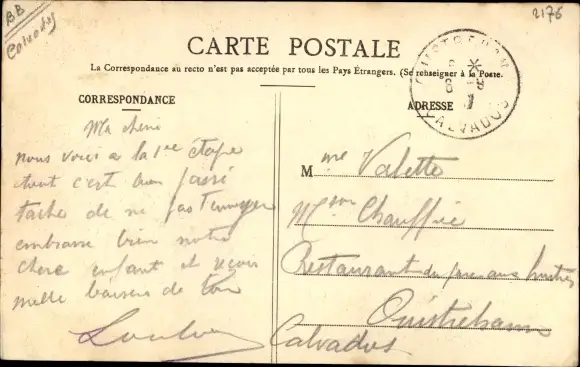 BB
Calvados
2176
CARTE POSTALE
La Correspondance au recto n'est pas acceptée par tous les Pays Étrangers. (Se renseigner à la Poste.
CORRESPONDANCE
ADRESSE
OUISTREHAM
CALVADOS
Ma cherie
nous voici a la 1re étape
tout c'est bien passé
tache de ne pas t'ennuyer
embrasse bien notre
chere enfant et reçois
mille baisers de ton
Mme Valette
Mson Chauffié
Restaurant du parc aux huitres
Ouistreham
Calvados